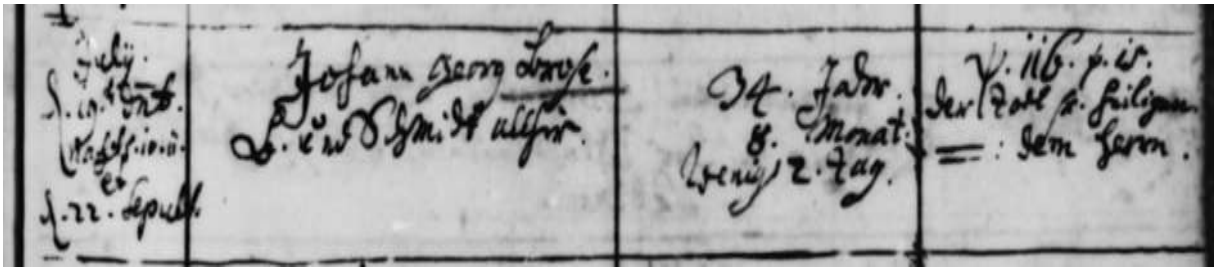 Julij.
d. 19. 
Nachts. 10. u.
et
d. 22. Sepult.
Johann Georg Brose.
B. und Schmidt allhir.
34. Jahr.
8. Monat.
wenig 2. tag.
ψ. 116. p. 15.
der Todt s. heiligen
: dem Herrn.